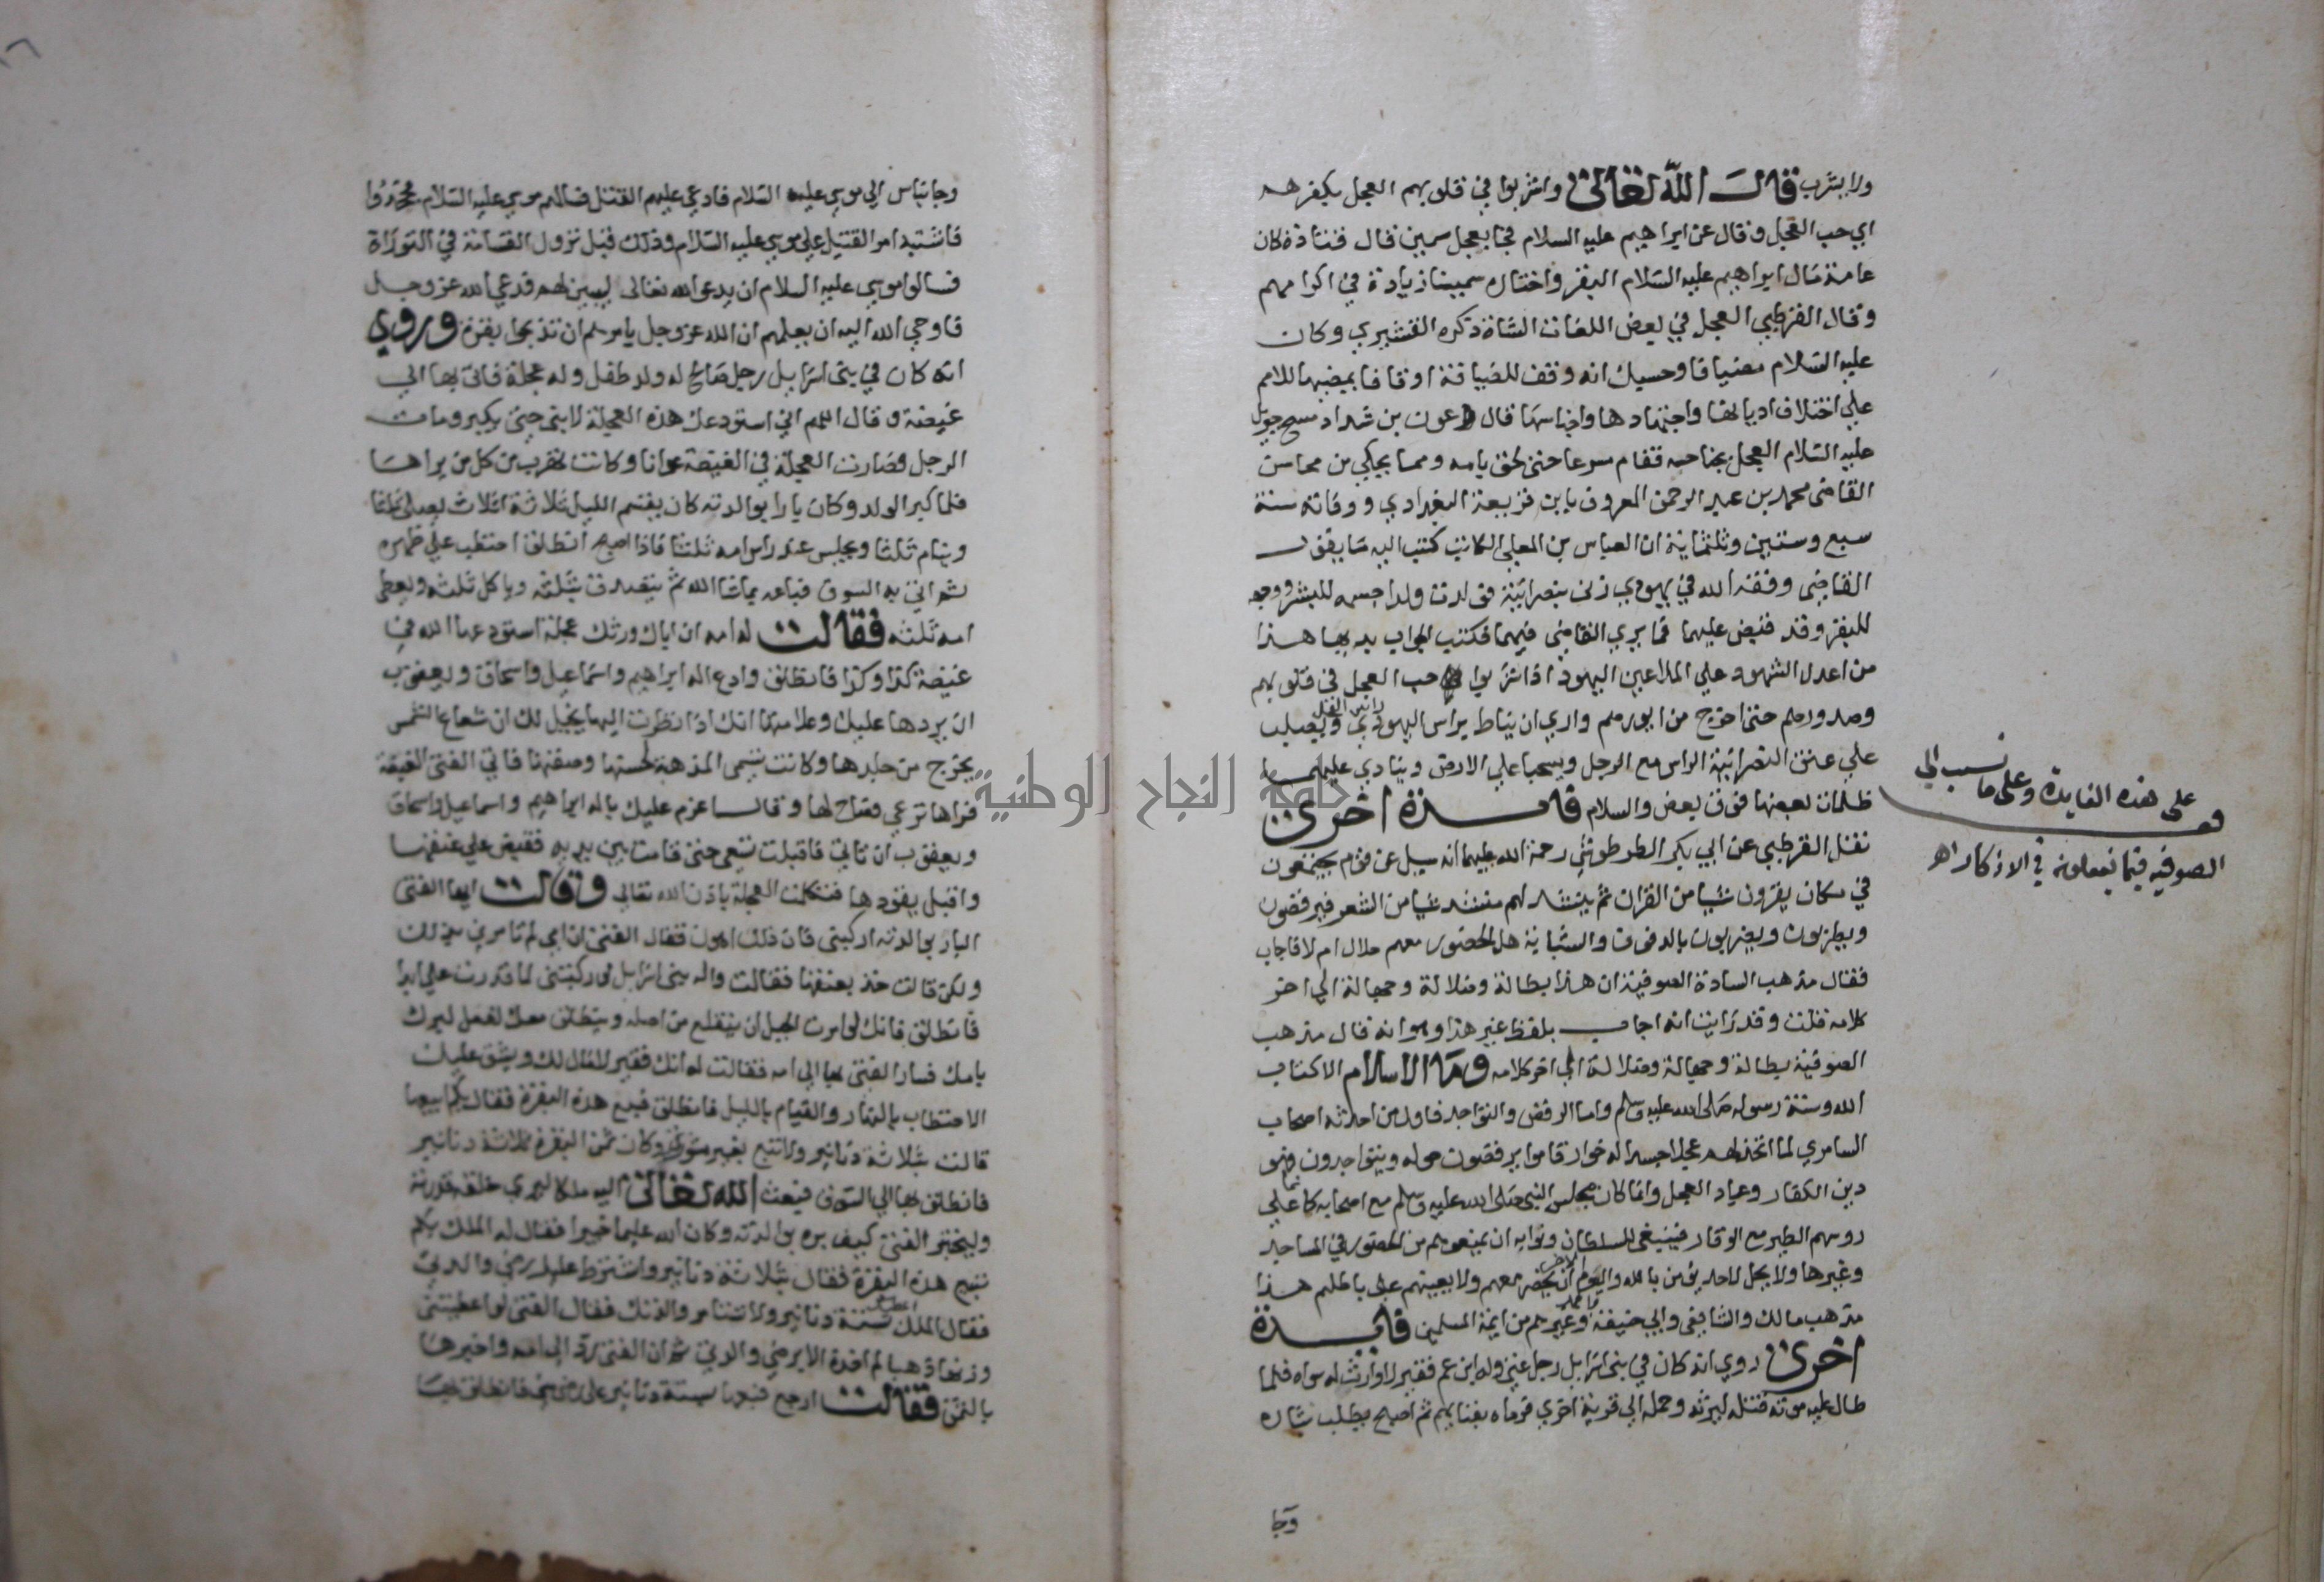 ولا يشرب قال الله تعالى واشربوا في قلوبهم العجل بكفرهم
اي حب العجل وقال عن ابراهيم عليه السلام فجا بعجل سمين قال قتادة كان
عامة مال ابراهيم عليه السلام البقر واختاره سمينا زيادة في اكرامهم
وقال القرطبي العجل في بعض اللغات الشاة ذكره القشيري وكان
عليه السلام مضيافا وحسبك انه وقف للضيافة اوقافا يمضيها للامم
علي اختلاف اديانها واجنادها واجناسها قال عون بن شداد مسح جبريل
عليه السلام العجل بجناحه فقام مسرعا حتى لحق بامه ومما يحكي من محاسن
القاضى محمد بن عبد الرحمن المعروف بابن قريعة البغدادي ووفاته سنة
سبع وستين وثلثماية ان العباس بن المعلي الكاتب كتب اليه ما يقول
القاضي وفقه الله في يهودي زنى بنصرانية فولدت ولدا جسمه للبشر ووجهه
للبقر وقد قبض عليهما فما يري القاضي فيهما فكتب الجواب بديها هذا
من اعدل الشهود علي الملاعين اليهود اذ اشربوا حب العجل في قلوبهم
وصدورهم حتى اخرج من ابورهم واري ان يناط براس اليهودي راس العجل ويصلب
علي عنق النصرانية الراس مع الرجل ويسحبا علي الارض وينادي عليهما
ظلمات بعضها فوق بعض والسلام فايدة اخرى
نقل القرطبي عن ابي بكر الطرطوشي رحمة الله عليهما انه سيل عن قوم يجتمعون
في مكان يقرون شيا من القران ثم ينشد لهم منشد شيا من الشعر فيرقصون
ويطربون ويضربون بالدفوف والشبابة هل الحضور معهم حلال ام لا فاجاب
فقال مذهب السادة الصوفية ان هذا بطالة وضلالة وجهالة الي اخر
كلامه قلت وقد رايت انه اجاب بلفظ غير هذا وهو انه قال مذهب
الصوفية بطالة وجهالة وضلالة الي اخر كلامه وما الاسلام الا كتاب
الله وسنة رسوله صلى الله عليه وسلم واما الرقص والتواجد فاول من احدثه اصحاب
السامري لما اتخذ لهم عجلا جسدا له خوار قاموا يرقصون حوله ويتواجدون فهو
دين الكفار وعباد العجل وانما كان مجلس النبي صلى الله عليه وسلم مع اصحابه كانما علي
روسهم الطير مع الوقار فينبغي للسلطان ونوابه ان يمنعوهم من الحضور في المساجد
وغيرها ولا يحل لاحد يومن بالله واليوم الاخر ان يحضر معهم ولا يعينهم على باطلهم هذا
مذهب مالك والشافعي وابي حنيفة واحمد وغيرهم من ايمة المسلمين فايدة
اخرى روي انه كان في بنى اسرايل رجل غني وله ابن عم فقير لا وارث له سواه فلما
طال عليه موته قتله ليرثه وحمله الي قرية اخري فرماه بفنايهم ثم اصبح يطلب بثاره
وجا
قف على هذه الفايدة وعلى ما نسب الى
الصوفيه فيما يفعلونه في الاذكار اهـ
وجا بناس الي موسي عليه السلام فادعي عليهم القتل فسالهم موسي عليه السلام فجحدوا
فاشتبه امر القتيل علي موسي عليه السلام وذلك قبل نزول القسامة في التوراة
فسالوا موسي عليه السلام ان يدعو الله تعالى ليبين لهم فدعي الله عز وجل
فاوحي الله اليه ان يعلمهم ان الله عز وجل يامرهم ان تذبحوا بقرة وروي
انه كان في بنى اسرايل رجل صالح له ولد طفل وله عجلة فاتى بها الي
غيضة وقال اللهم اني استودعك هذه العجلة لابني حتى يكبر ومات
الرجل وصارت العجلة في الغيضة عوانا وكانت تهرب من كل من يراها
فلما كبر الولد وكان بارا بوالدته كان يقسم الليل ثلاثة اثلاث يصلي ثلثا
وينام ثلثا ويجلس عند راس امه ثلثا فاذا اصبح انطلق احتطب علي ظهره
ثم اتى به السوق فباعه بما شا الله ثم يتصدق بثلثه وياكل ثلثه ويعطي
امه ثلثه فقالت له امه ان اباك ورثك عجلة استودعها الله في
غيضة كذا وكذا فانطلق وادع اله ابراهيم واسماعيل واسحاق ويعقوب
ان يردها عليك وعلامتها انك اذا نظرت اليها يخيل لك ان شعاع الشمس
يخرج من جلدها وكانت تسمى المذهبة لحسنها وصفرتها فاتي الفتى الغيضة
فراها ترعي فصاح لها وقال اعزم عليك باله ابراهيم واسماعيل واسحاق
ويعقوب ان تاتي فاقبلت تسعي حتى قامت بين يديه فقبض علي عنقها
واقبل يقودها فتكلمت العجلة باذن الله تعالى وقالت ايها الفتى
البار بوالدته اركبني فان ذلك اهون فقال الفتى ان امي لم تامرني بذلك
ولكن قالت خذ بعنقها فقالت واله بني اسرايل لو ركبتني لما قدرت علي ابدا
فانطلق فانك لو امرت الجبل ان ينقلع من اصله وينطلق معك لفعل لبرك
بامك فسار الفتى بها الي امه فقالت له انك فقير لا مال لك ويشق عليك
الاحتطاب بالنهار والقيام بالليل فانطلق فبع هذه البقرة فقال بكم ابيعها
قالت بثلاثة دنانير ولا تبع بغير مشورتي وكان ثمن البقرة ثلاثة دنانير
فانطلق بها الي السوق فبعث الله تعالى اليه ملكا ليري خلقه قدرته
وليختبر الفتى كيف بره بوالدته وكان الله عليما خبيرا فقال له الملك بكم
تبيع هذه البقرة فقال بثلاثة دنانير واشترط عليك رضي والدتي
فقال الملك اعطيك ستة دنانير ولا تستامر والدتك فقال الفتى لو اعطيتني
وزنها ذهبا لم اخذه الا برضي والدتي ثم ان الفتى رد الي امه واخبرها
بالثمن فقالت ارجع فبعها بستة دنانير على رضى مني فانطلق بها
جامعة النجاح الوطنية